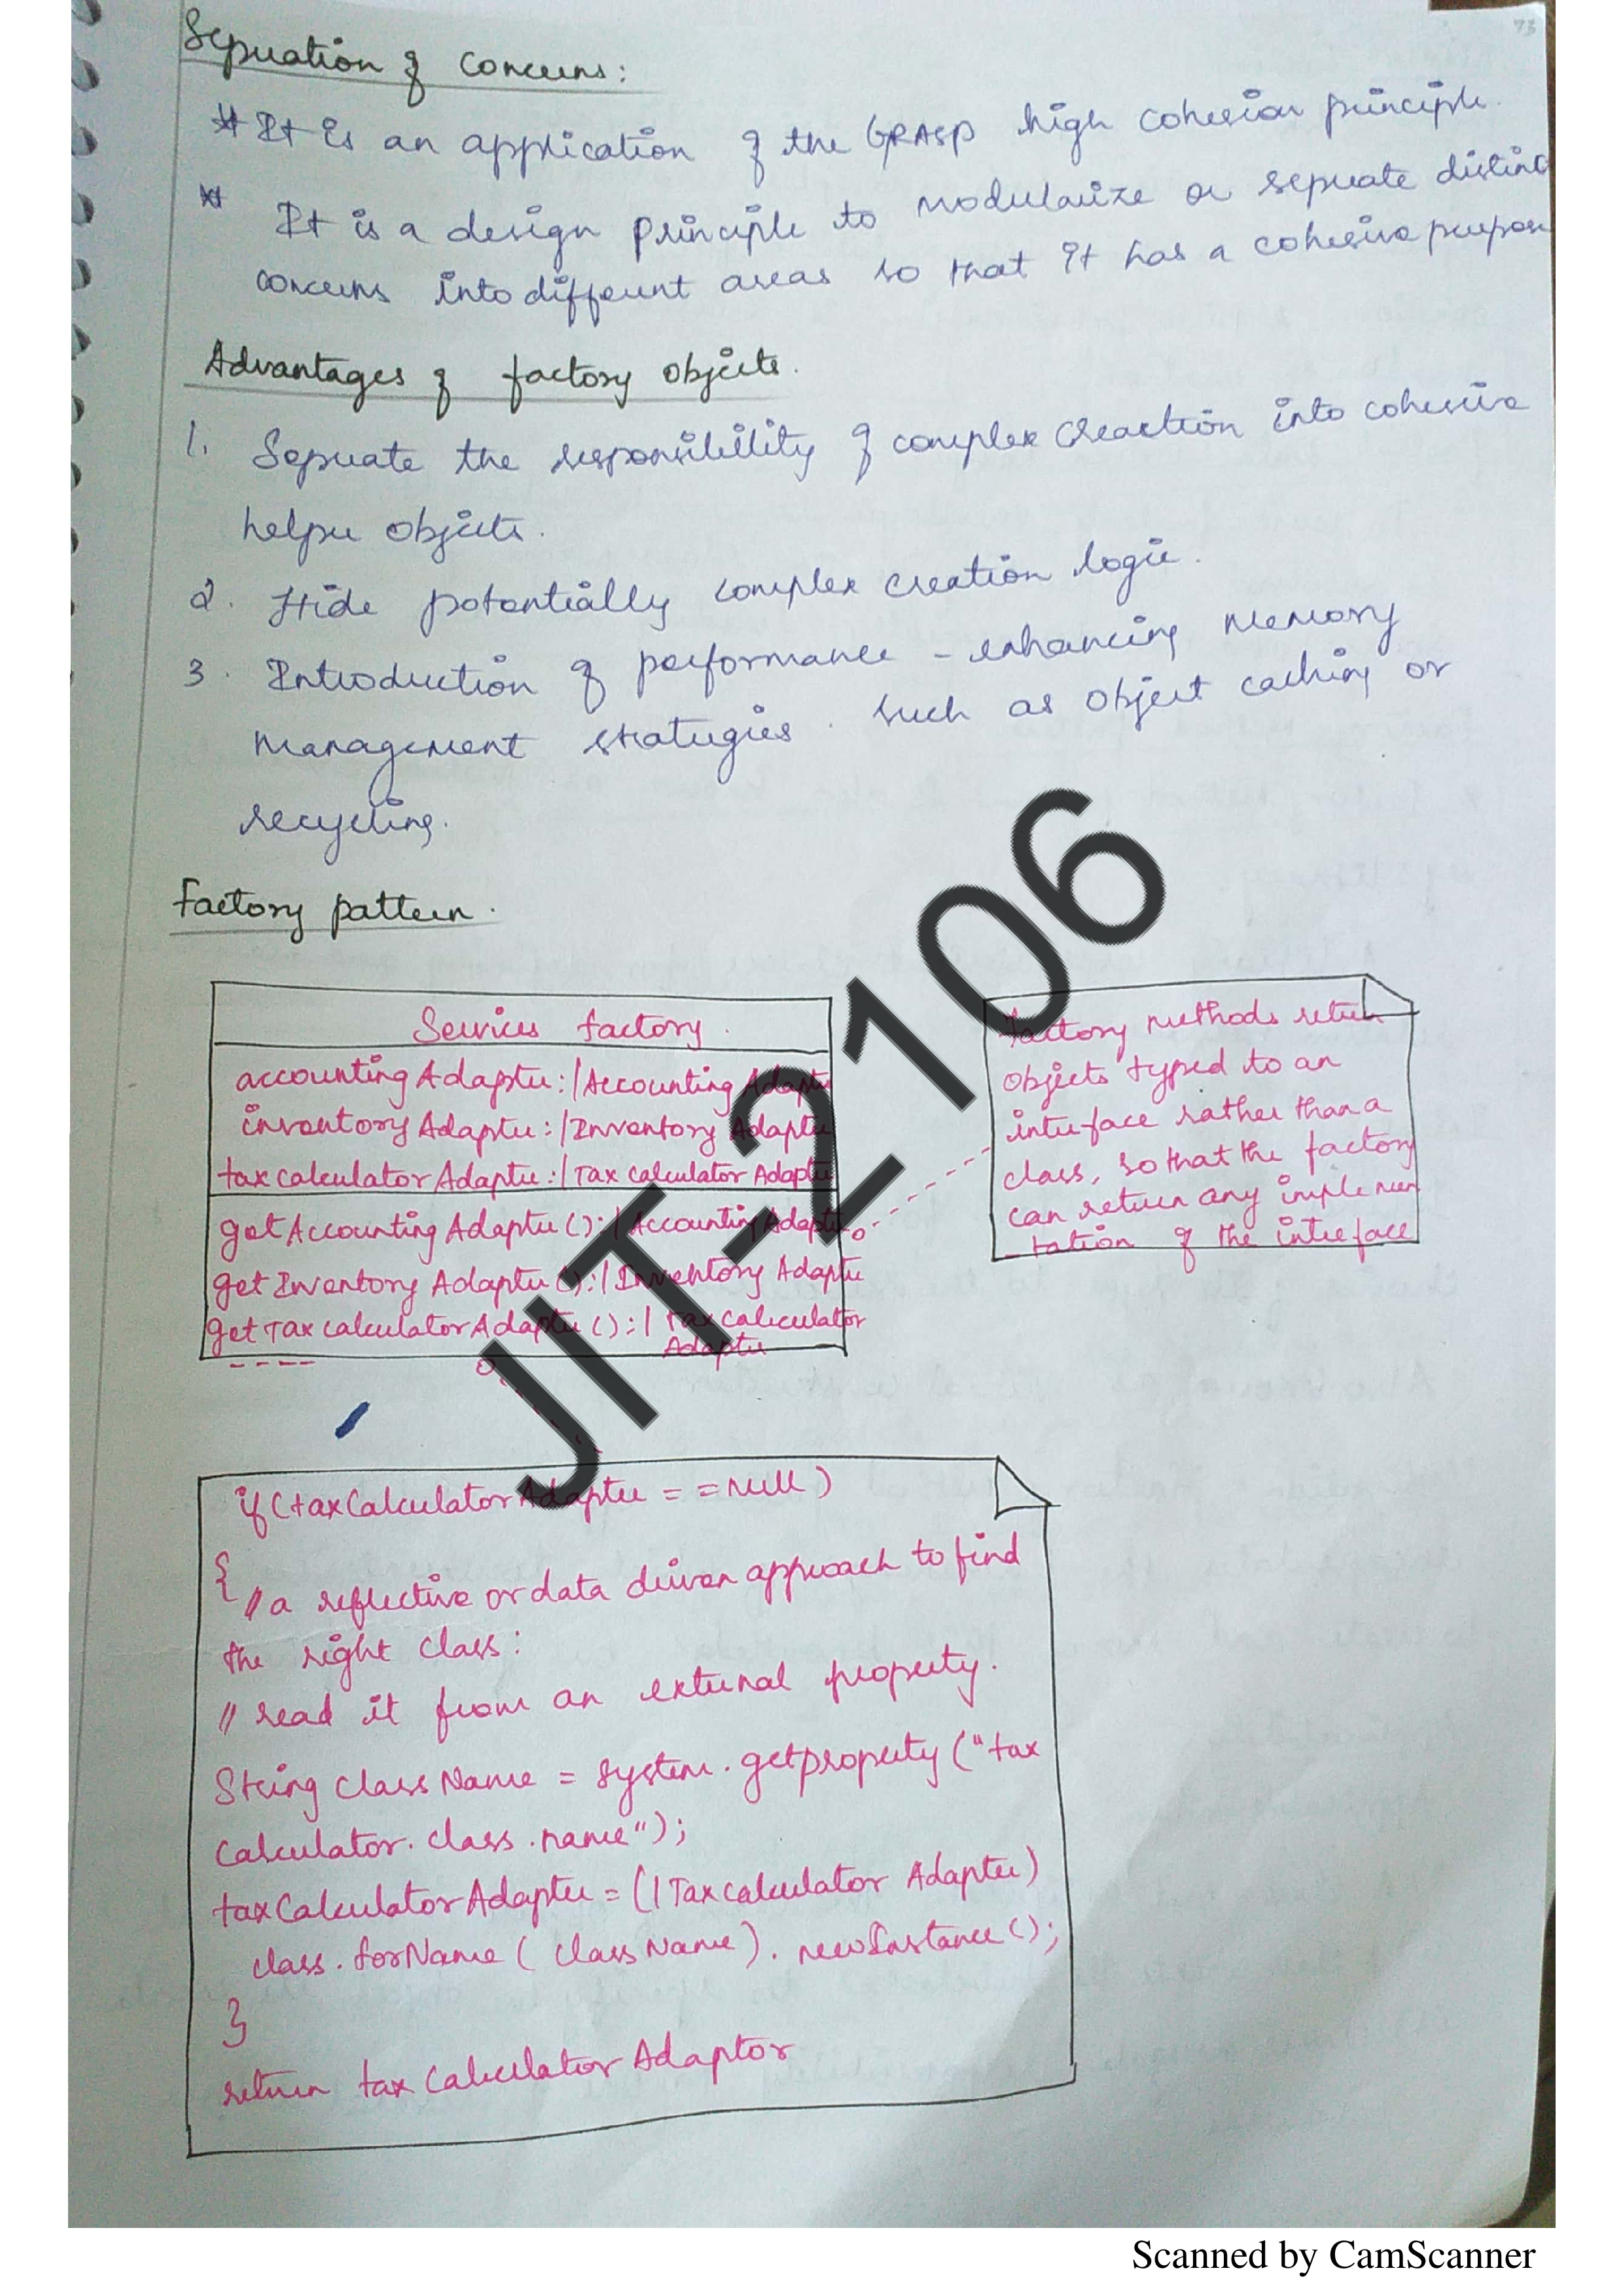 73
Separation of Concerns:
* It is an application of the GRASP high cohesion principle.
* It is a design principle to modularize or separate distinct
concerns into different areas so that it has a cohesive purpose
Advantages of factory objects.
1. Separate the responsibility of complex creaction into cohesive
helper objects.
2. Hide potentially complex creation logic.
3. Introduction of performance - enhancing memory
management strategies. such as object caching or
recycling.
Factory pattern.
Services factory.
accounting Adapter: IAccounting Adapter
inventory Adapter: IInventory Adapter
tax calculator Adapter: ITax calculator Adapter
get Accounting Adapter (): IAccounting Adapter
get Inventory Adapter (): IInventory Adapter
get Tax calculator Adapter (): I Tax calculator
Adapter
----
factory methods return
objects typed to an
interface rather than a
class, so that the factory
can return any implemen
- tation of the interface
if (taxCalculator Adapter = = null)
{
// a reflective or data driven approach to find
the right class:
// read it from an external property.
String class Name = system. getproperty ("tax
calculator. class. name");
taxCalculator Adapter = (I Taxcalculator Adapter)
class. forName ( class Name ). newInstance ();
}
return tax Calculator Adaptor
JIT-2106
Scanned by CamScanner